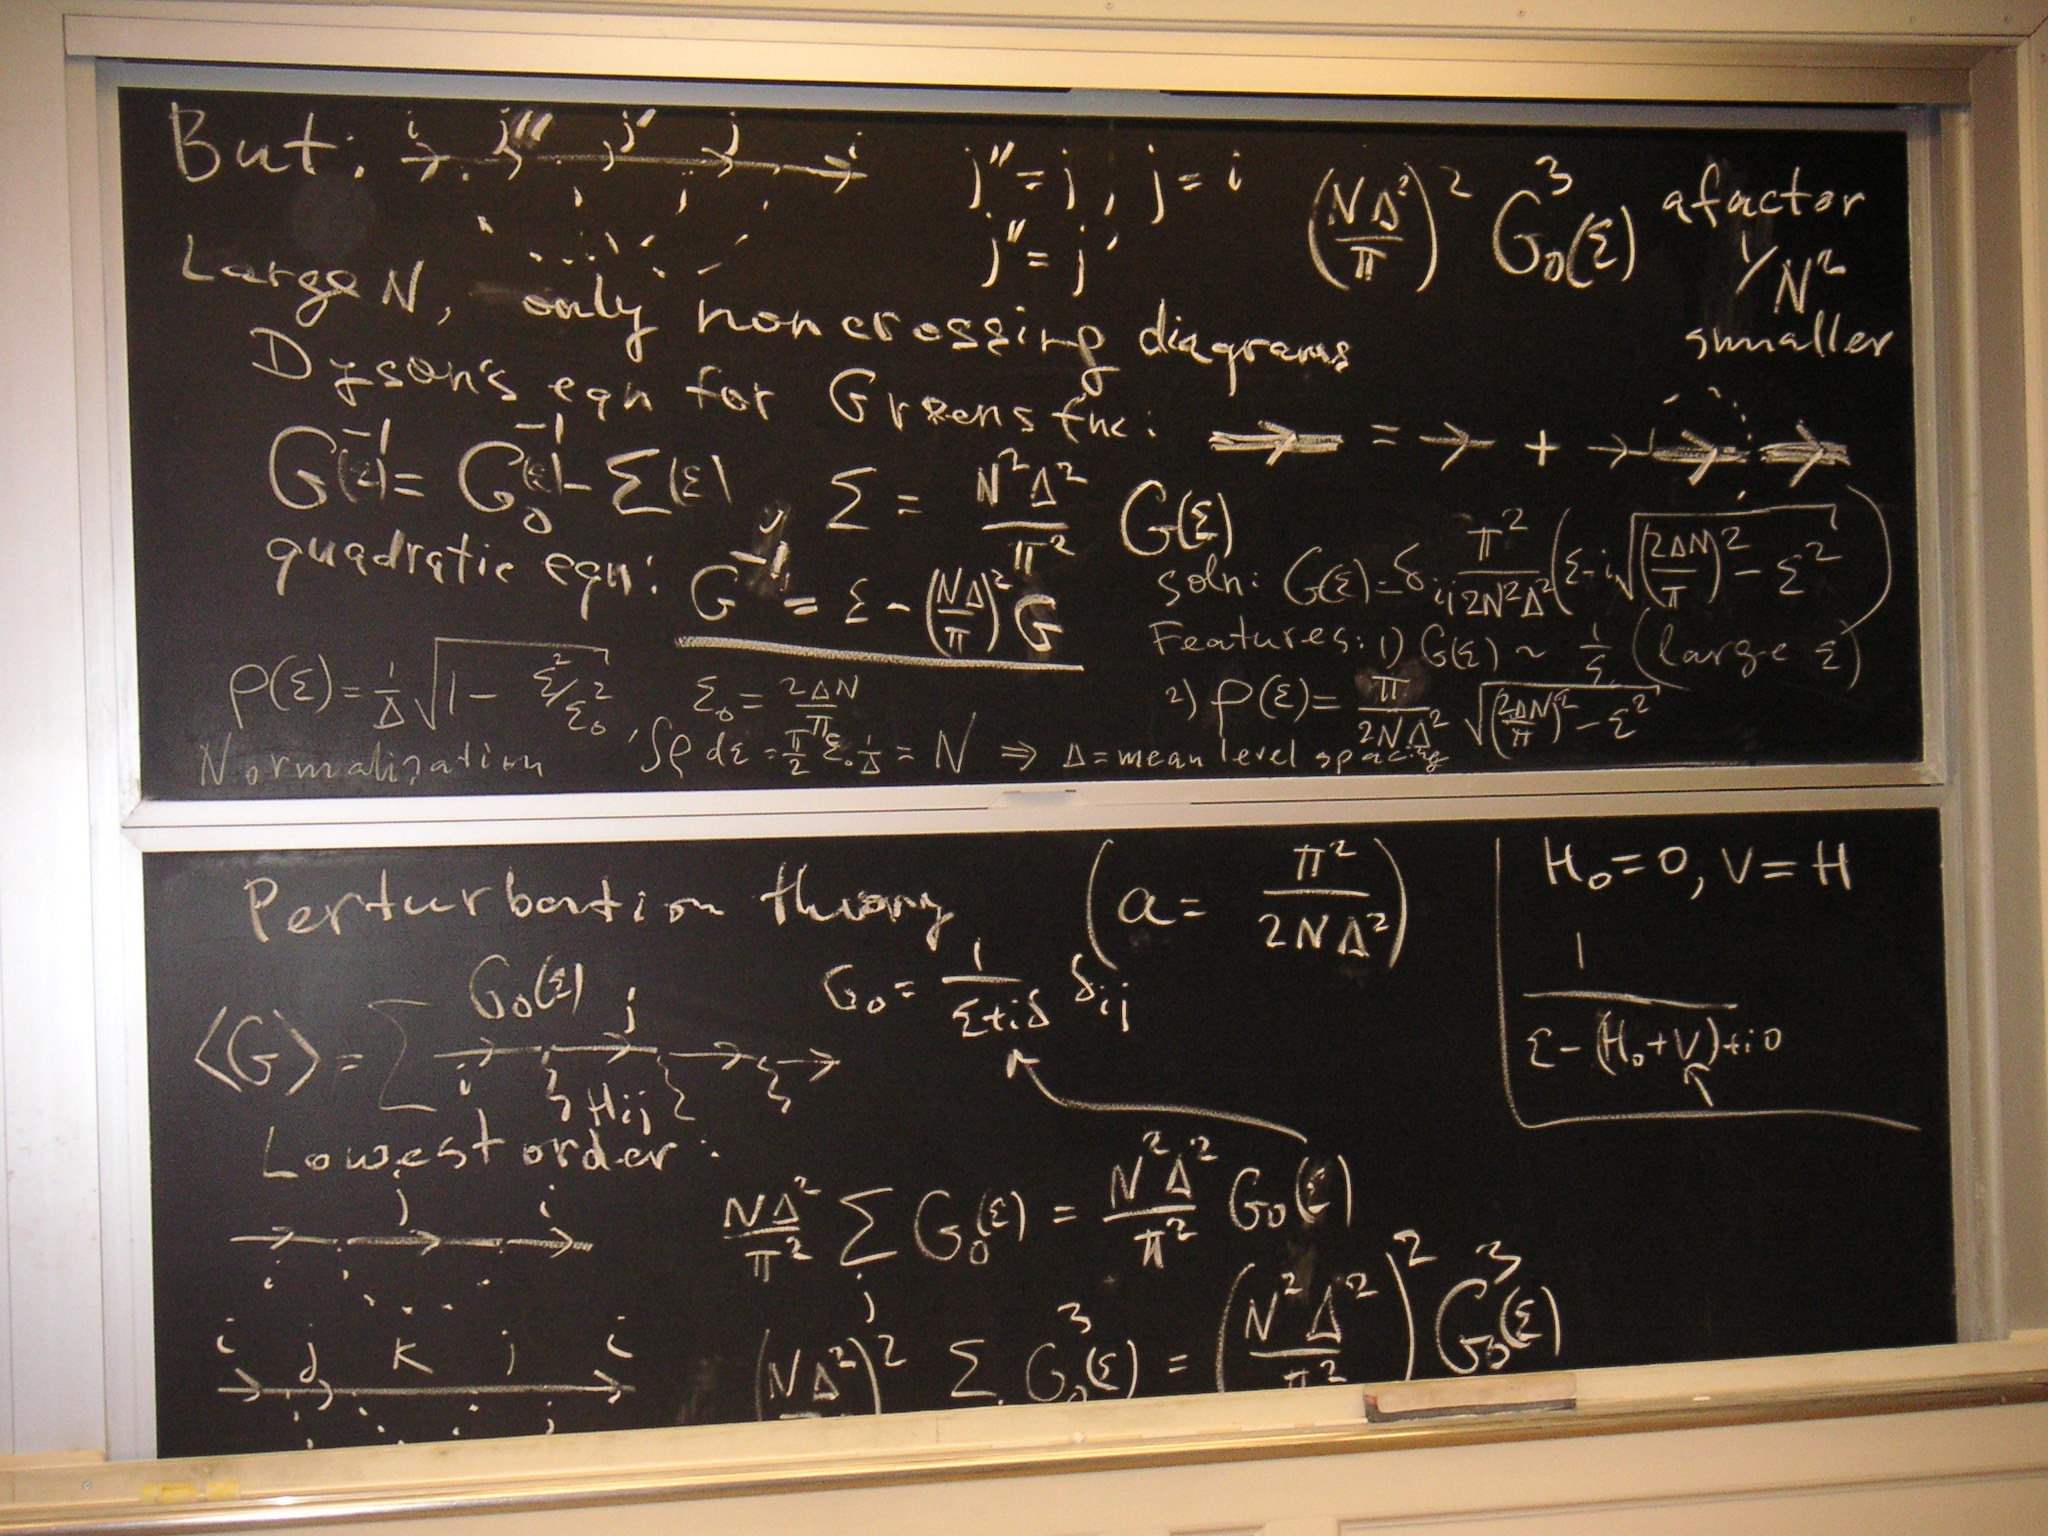 But: i j'' j' j i j''=j, j=i (NΔ²/π)² G₀³(ε) a factor
j''=j' 1/N²
Large N, only non crossing diagrams smaller
Dyson's eqn for Greens fnc: → = → + → → →
G⁻¹(ε) = G₀⁻¹(ε) - Σ(ε), Σ = N²Δ²/π² G(ε)
quadratic eqn: G⁻¹ = ε - (NΔ/π)² G
soln: G(ε) = δᵢⱼ π²/2N²Δ² (ε - i√((2ΔN/π)² - ε²))
Features: 1) G(ε) ~ 1/ε (large ε)
2) ρ(ε) = π/2NΔ² √((2ΔN/π)² - ε²)
ρ(ε) = 1/Δ √(1 - ε²/ε₀²), ε₀ = 2ΔN/π
Normalization ∫ρdε = π/2 ε₀ 1/Δ = N ⇒ Δ = mean level spacing
Perturbation theory (a = π²/2NΔ²)
H₀=0, V=H
1/(ε-(H₀+V)+i0)
⟨G⟩ = Σ G₀(ε) i j Hij G₀ = 1/(ε+iδ) δij
Lowest order:
i j i NΔ²/π² Σj G₀(ε) = N²Δ²/π² G₀(ε)
i j k j i (NΔ²)² Σ G₀³(ε) = (N²Δ²/π²)² G₀³(ε)